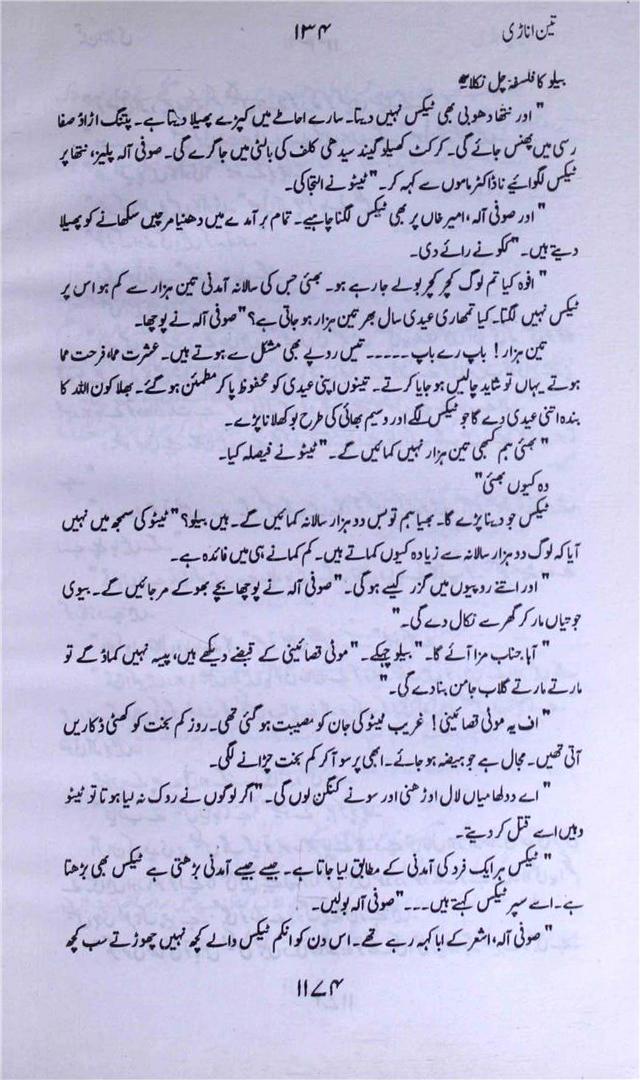 تین اناڑی ۱۳۴
بیلو کا فلسفہ چل نکلا۔
" اور نتھا دھوبی بھی ٹیکس نہیں دیتا۔ سارے احاطے میں کپڑے پھیلا دیتا ہے۔ پتنگ اڑاؤ صفا
رسی میں پھنس جائے گی۔ کرکٹ کھیلو گیند سیدھی کلف کی بالٹی میں جا گرے گی۔ صوفی آلہ پلیز، نتھا پر
ٹیکس لگوائیے نا ڈاکٹر ماموں سے کہہ کر۔" ٹیٹو نے التجا کی۔
" اور صوفی آلہ، امیر خاں پر بھی ٹیکس لگنا چاہیے۔ تمام برآمدے میں دھنیا مرچیں سکھانے کو پھیلا
دیتے ہیں۔" ککو نے رائے دی۔
" افوہ کیا تم لوگ کچر کچر بولے جا رہے ہو۔ بھئی جس کی سالانہ آمدنی تین ہزار سے کم ہو اس پر
ٹیکس نہیں لگتا۔ کیا تمھاری عیدی سال بھر تین ہزار ہو جاتی ہے؟" صوفی آلہ نے پوچھا۔
تین ہزار! باپ رے باپ ۔۔۔۔۔ تیس روپے بھی مشکل سے ہوتے ہیں۔ عشرت مما، فرحت مما
ہوتے یہاں تو شاید چالیس ہو جایا کرتے۔ تینوں اپنی عیدی کو محفوظ پا کر مطمئن ہو گئے۔ بھلا کون اللہ کا
بندہ اتنی عیدی دے گا جو ٹیکس لگے اور وسیم بھائی کی طرح بوکھلانا پڑے۔
" بھئی ہم کبھی تین ہزار نہیں کمائیں گے۔" ٹیٹو نے فیصلہ کیا۔
وہ کیوں بھئی"
ٹیکس جو دینا پڑے گا۔ بھیا ہم تو بس دو ہزار سالانہ کمائیں گے۔ ہیں بیلو؟" ٹیٹو کی سمجھ میں نہیں
آیا کہ لوگ دو ہزار سالانہ سے زیادہ کیوں کماتے ہیں۔ کم کمانے ہی میں فائدہ ہے۔
" اور اتنے روپیوں میں گزر کیسے ہوگی۔" صوفی آلہ نے پوچھا بچے بھوکے مر جائیں گے۔ بیوی
جوتیاں مار کر گھر سے نکال دے گی۔"
" آہا جناب مزا آئے گا۔" بیلو چہکے۔ " موٹی قصائینی کے قبضے دیکھے ہیں، پیسہ نہیں کماؤ گے تو
مارتے مارتے گلاب جامن بنا دے گی۔"
" اف یہ موٹی قصائینی! غریب ٹیٹو کی جان کو مصیبت ہو گئی تھی۔ روز کم بخت کو کھٹی ڈکاریں
آتی تھیں۔ مجال ہے جو ہیضہ ہو جائے۔ ابھی پرسو آ کر کم بخت چڑانے لگی۔
" اے دولھا میاں لال اوڑھنی اور سونے کے کنگن لوں گی۔" اگر لوگوں نے روک نہ لیا ہوتا تو ٹیٹو
وہیں اسے قتل کر دیتے۔
" ٹیکس ہر ایک فرد کی آمدنی کے مطابق لیا جاتا ہے۔ جیسے جیسے آمدنی بڑھتی ہے ٹیکس بھی بڑھتا
ہے۔ اسے سپر ٹیکس کہتے ہیں۔۔۔" صوفی آلہ بولیں۔
" صوفی آلہ، اشعر کے ابا کہہ رہے تھے۔ اس دن کو انکم ٹیکس والے کچھ نہیں چھوڑتے سب کچھ
۱۱۷۴